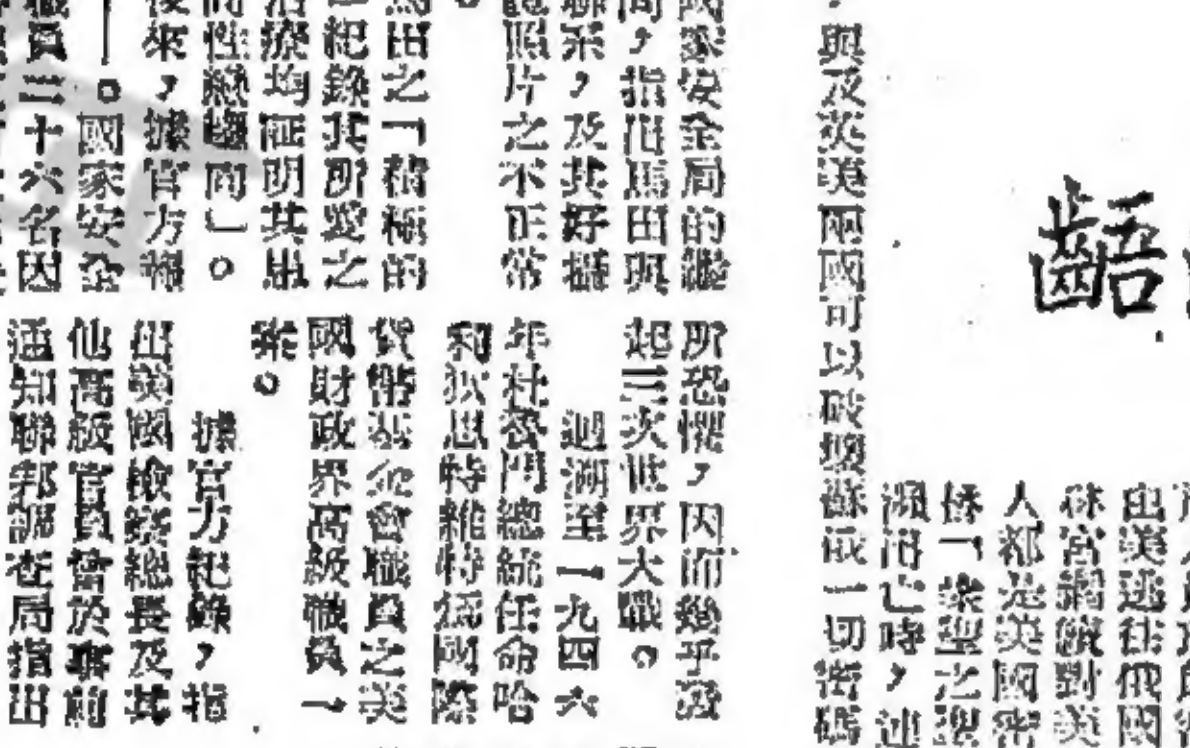 齬
出美逃往俄國
林宮繼續對美
人都是美國密
，與及英美兩國可以破壞蘇俄一切密碼
國家安全局的繼
問，指出馬田與
聯系，及其好攝
體照片之不正常
。
馬田之「積極的
紀錄其所愛之
治療均証明其出
同性戀趨向」。
後來，據官方報
——。國家安全
職員三十六名因
所恐懼，因而幾乎發
起三次世界大戰。
迴溯至一九四六
年杜魯門總統任命哈
利狄思特維特為國際
貨幣基金會職員之美
國財政界高級職員一
案。
據官方紀錄，指
出美國檢察總長及其
他高級官員曾於事前
通知聯邦調查局指出